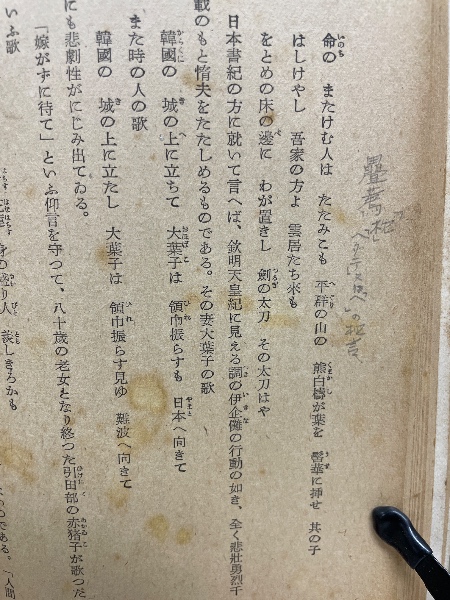 命の　またけむ人は　たたみこも　平群の山の　熊白檮が葉を　髻華に挿せ　其の子
はしけやし　吾家の方よ　雲居たち來も
をとめの床の邊に　わが置きし　劍の太刀　その太刀はや
日本書紀の方に就いて言へば、欽明天皇紀に見える調の伊企儺の行動の如き、全く悲壯勇烈千
載のもと惰夫をたたしめるものである。その妻大葉子の歌
韓國の　城の上に立ちて　大葉子は　領巾振らすも　日本へ向きて
また時の人の歌
韓國の　城の上に立たし　大葉子は　領巾振らす見ゆ　難波へ向きて
にも悲劇性がにじみ出てゐる。
「嫁がずに待て」といふ仰言を守つて、八十歳の老女となり終つた引田部の赤猪子が歌つた
いふ歌
身の盛り人　羨しきろかも
である。「人間